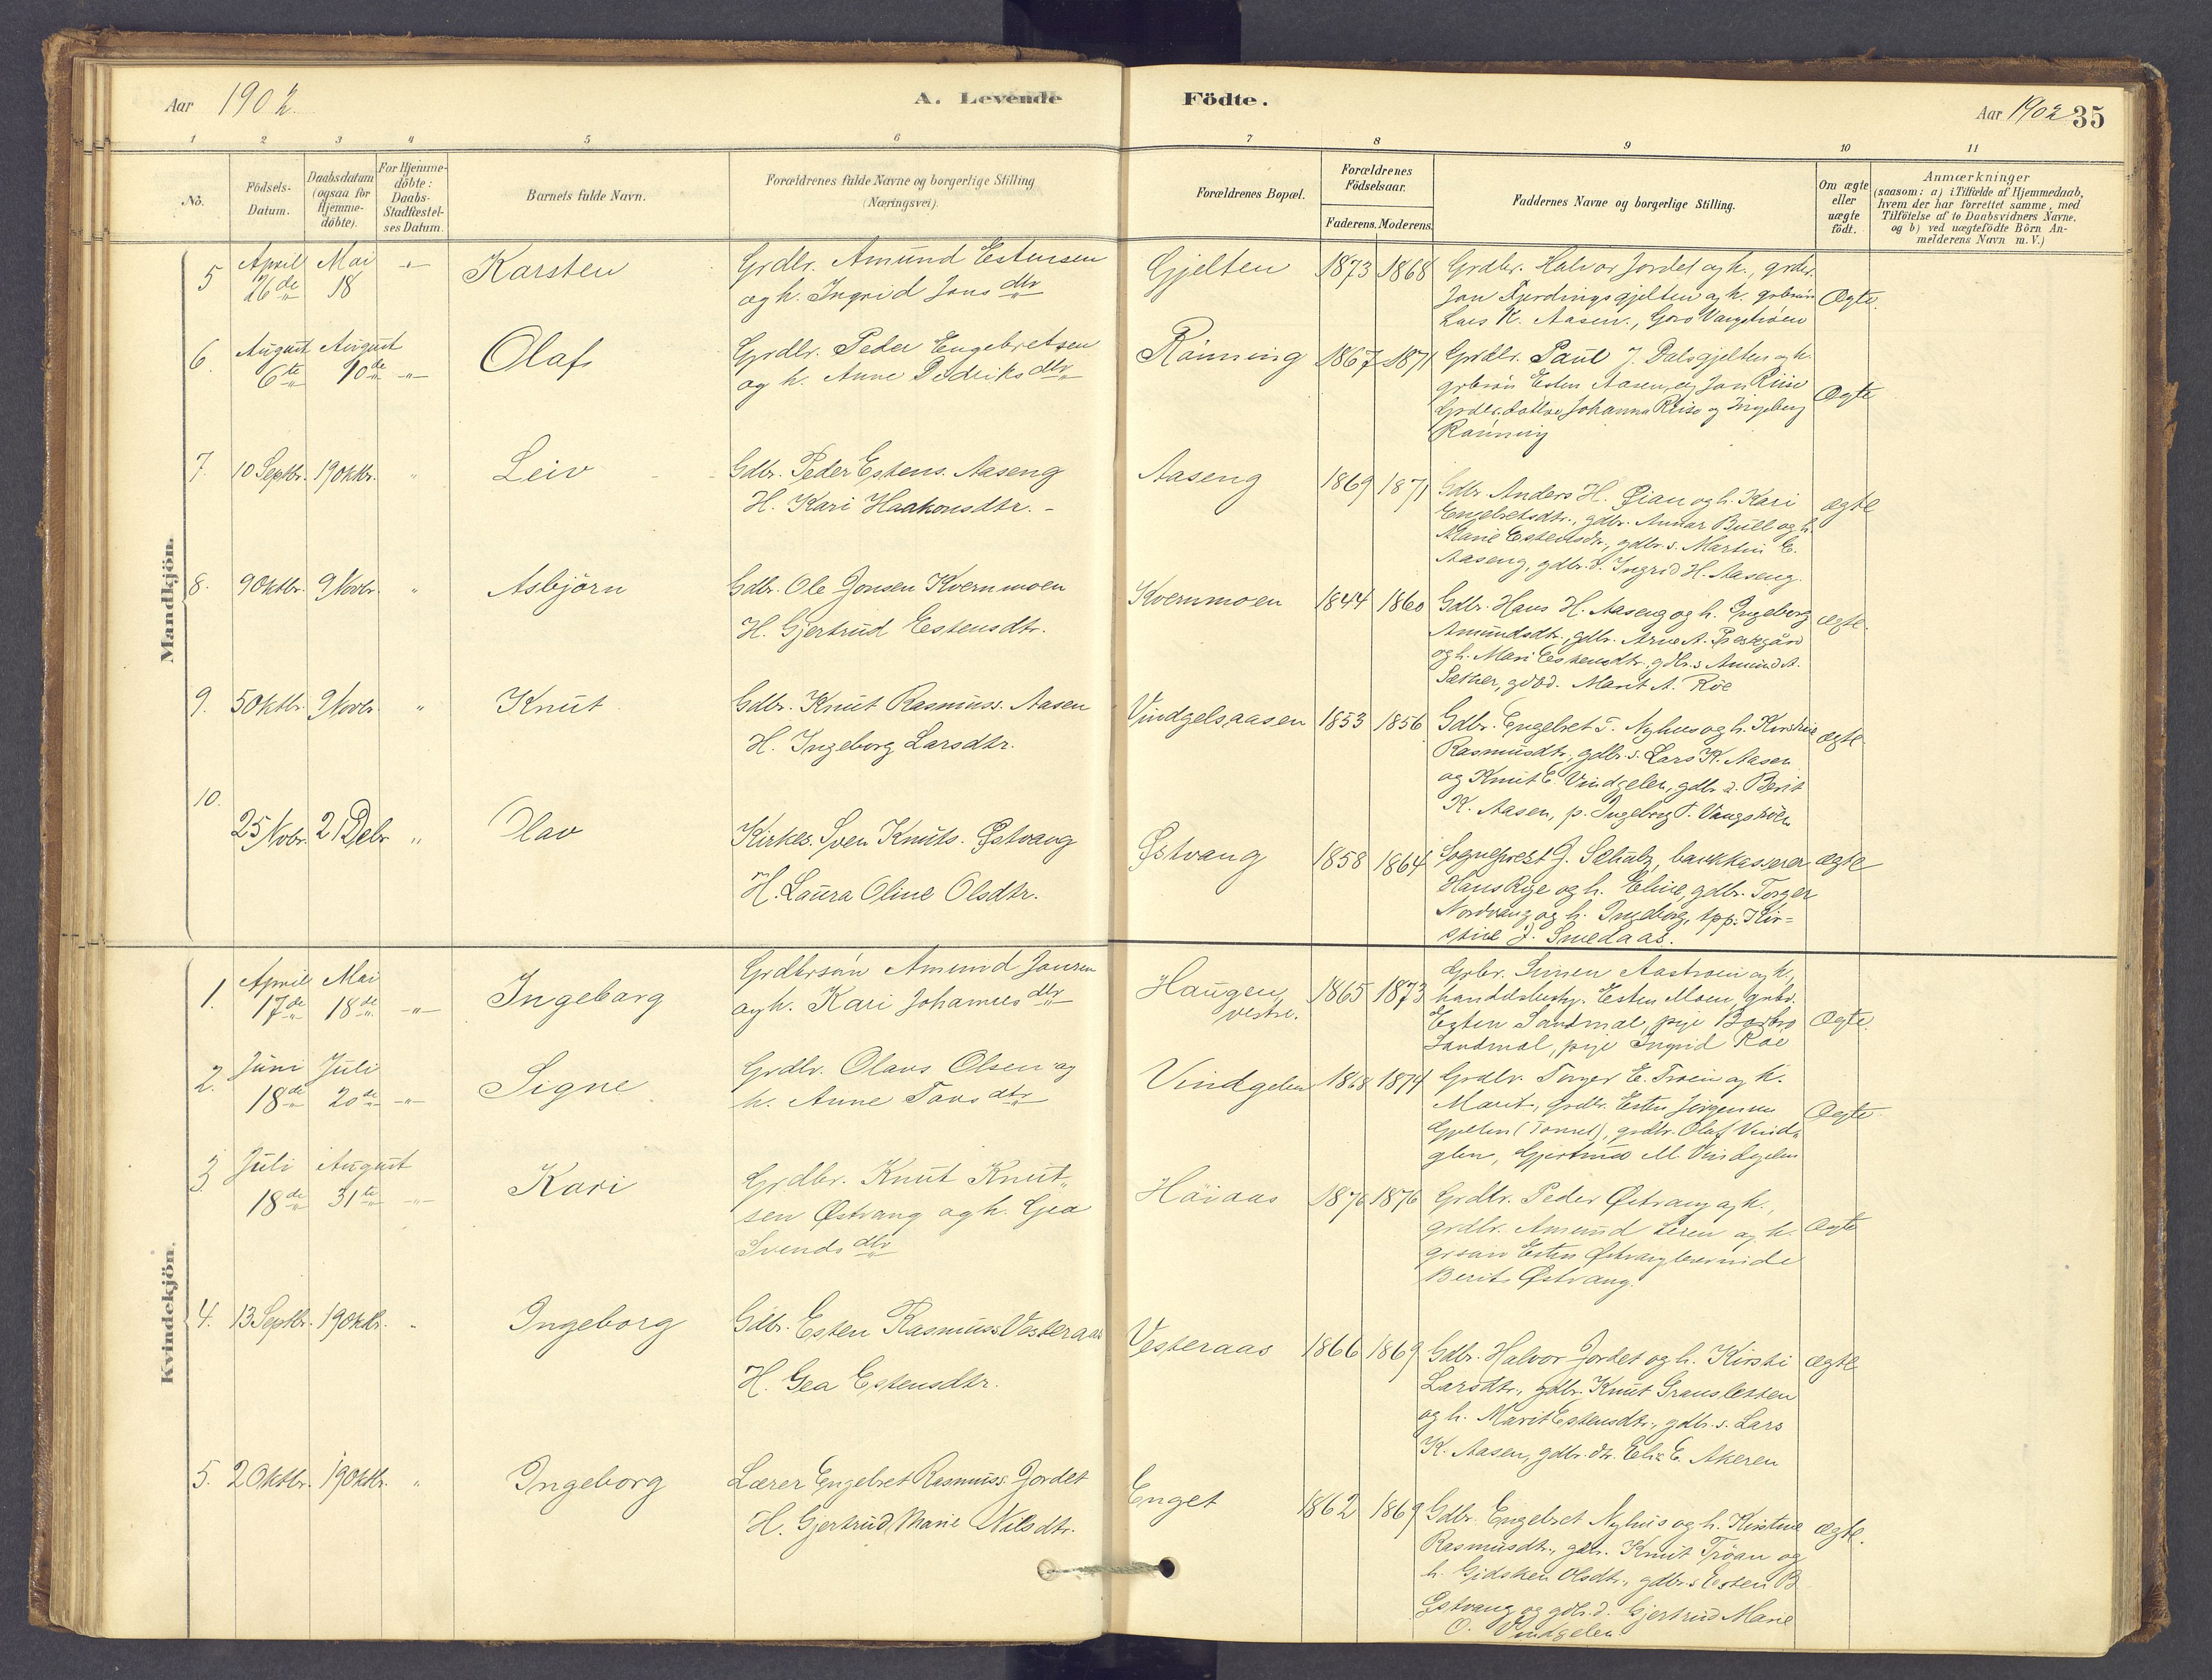 Aar 1902.
A. Levende
Födte.
Aar 1902 35
1 2 3 4 5 6 7 8 9 10 11
No.
Födsels-
Datum.
Daabsdatum
(ogsaa for
Hjemme-
döbte).
For Hjemme-
döbte:
Daabs-
Stadfæstel-
ses Datum.
Barnets fulde Navn.
Forældrenes fulde Navne og borgerlige Stilling
(Næringsvei).
Forældrenes Bopæl.
Forældrenes
Födselsaar.
Faderens. Moderens.
Faddernes Navne og borgerlige Stilling.
Om ægte
eller
uægte
födt.
Anmærkninger
(saasom: a) i Tilfælde af Hjemmedaab,
hvem der har forrettet samme, med
Tilföielse af to Daabsvidners Navne.
og b) ved uægtefödte Börn An-
melderens Navn m. V.)
Mandkjön.
5
April
26de
Mai
18
Karsten
Grdbr. Amund Estensen
og h. Ingrid Jonsdtr
Gjelten
1873 1868
Grdbr. Halvor Jordet og h., grdbr.
Jon Fjerdingsgjelten og h. grbrsön
Lars K. Aasen., Goro Vangskröen
Ægte.
6.
August
6te
August
10de
Olaf
Grdbr. Peder Engebretsen
og h. Anne Pedriksdtr
Rönning
1867 1871
Grdbr. Paul J. Dalsgjelten og h.
grbrsön Esten Aasen, og Jon Riise
Grdbr.döttre Johanna Riise og Ingeborg
Rönning
Ægte
7.
10 Septbr. 19 Oktbr. "
Leiv
Gdbr. Peder Estens. Aaseng
H. Kari Haakonsdtr. -
Aaseng
1869 1871
Gdbr. Anders H. Øian og h. Kari
Engebretsdtr., gdbr. Annar Bull og h.
Marie Estensdtr., gdbr.s. Martin E.
Aaseng, gdbr.d. Ingrid H. Aaseng.
ægte
8.
9 Oktbr. 9 Novbr. "
Asbjörn
Gdbr. Ole Jonsen Kvernmoen
H. Gjertrud Estensdtr.
Kvernmoen
1844 1860
Gdbr. Hans H. Aaseng og h. Ingeborg
Amundsdtr., gdbr. Arne A.
og h. Mari Estensdtr., gdbr.s Amund A.
Sæther, gdbd. Marit A. Röe
ægte.
9.
5 Oktbr. 9 Novbr. "
Knut
Gdbr. Knut Rasmuss. Aasen
H. Ingeborg Larsdtr.
Vindgelsaasen
1853 1856
Gdbr. Engebret T. Nyhus og h. Kirstine
Rasmusdtr., gdbr.s. Lars K. Aasen
og Knut E. Vindgelen, gdbr.d. Berit
K. Aasen, p. Ingeborg T. Vangskröen
ægte
10.
25 Novbr. 21 Debr. "
Olav
Kirkes. Sven Knuts. Østvang
H. Laura Oline Olsdtr.
Østvang
1858 1864
Sogneprest J. Schulz, bankkasserer
Hans Rige og h. Eline, gdbr. Torger
Nordvang og h. Ingeborg, tpp. Kir-
stine J. Smedaas.
ægte
Kvindekjön.
1.
April
17de
Mai
18de
Ingeborg
Grdbrsön Amund Jonsen
og h. Kari Johannesdtr
Haugen,
vestre.
1865 1873
Grbr. Simen Aastroen og h.,
handelsbesty. Esten Moen, grbr.
Esten Sandmal, pige Barbro
Sandmal, pige Ingrid Röe
Ægte.
2.
Juni
18de
Juli
20de
Signe
Grdbr. Olaus Olsen og
h. Anne Tovsdtr
Vindgelen
1868 1874
Grdbr. Torger E. Troen og h.
Marit, Grdbr. Esten Jörgensen
Gjelten (Tonset), grdbr. Olaf Vind-
glen, Gjertrud M. Vindgelen
Ægte
3.
Juli
18de
August
31te
Kari
Grdbr. Knut Knut-
sen Østvang og h. Gea
Svendsdtr
Höiaas
1876 1876
Grdbr. Peder Østvang og h.,
grdbr. Amund Leren og h.
grsøn Esten Østvang
Berit Østvang.
Ægte
4.
13 Septbr. 19 Oktbr. "
Ingeborg
Gdbr. Esten Rasmuss Vesteraas
H. Gea Estensdtr.
Vesteraas
1866 1869
Gdbr. Halvor Jordet og h. Kirsti
Larsdtr., gdbr. Knut Granslette​n
og h. Marit Estensdtr., gdbr.s. Lars
K. Aasen, gdbr.dtr. Elis E. Akeren
ægte
5.
2 Oktbr. 19 Oktbr. "
Ingeborg
Lærer Engebret Rasmuss. Jordet
H. Gjertrud Marie Nilsdtr.
Enget
1862 1869
Gdbr. Engebret Nyhus og h. Kirstine
Rasmusdtr., gdbr. Knut Tröan og
h. Gidsken Olsdtr., gdbr.s Esten B.
Østvang og gdbr.d. Gjertrud Marie
O. Vindgelen
ægte.